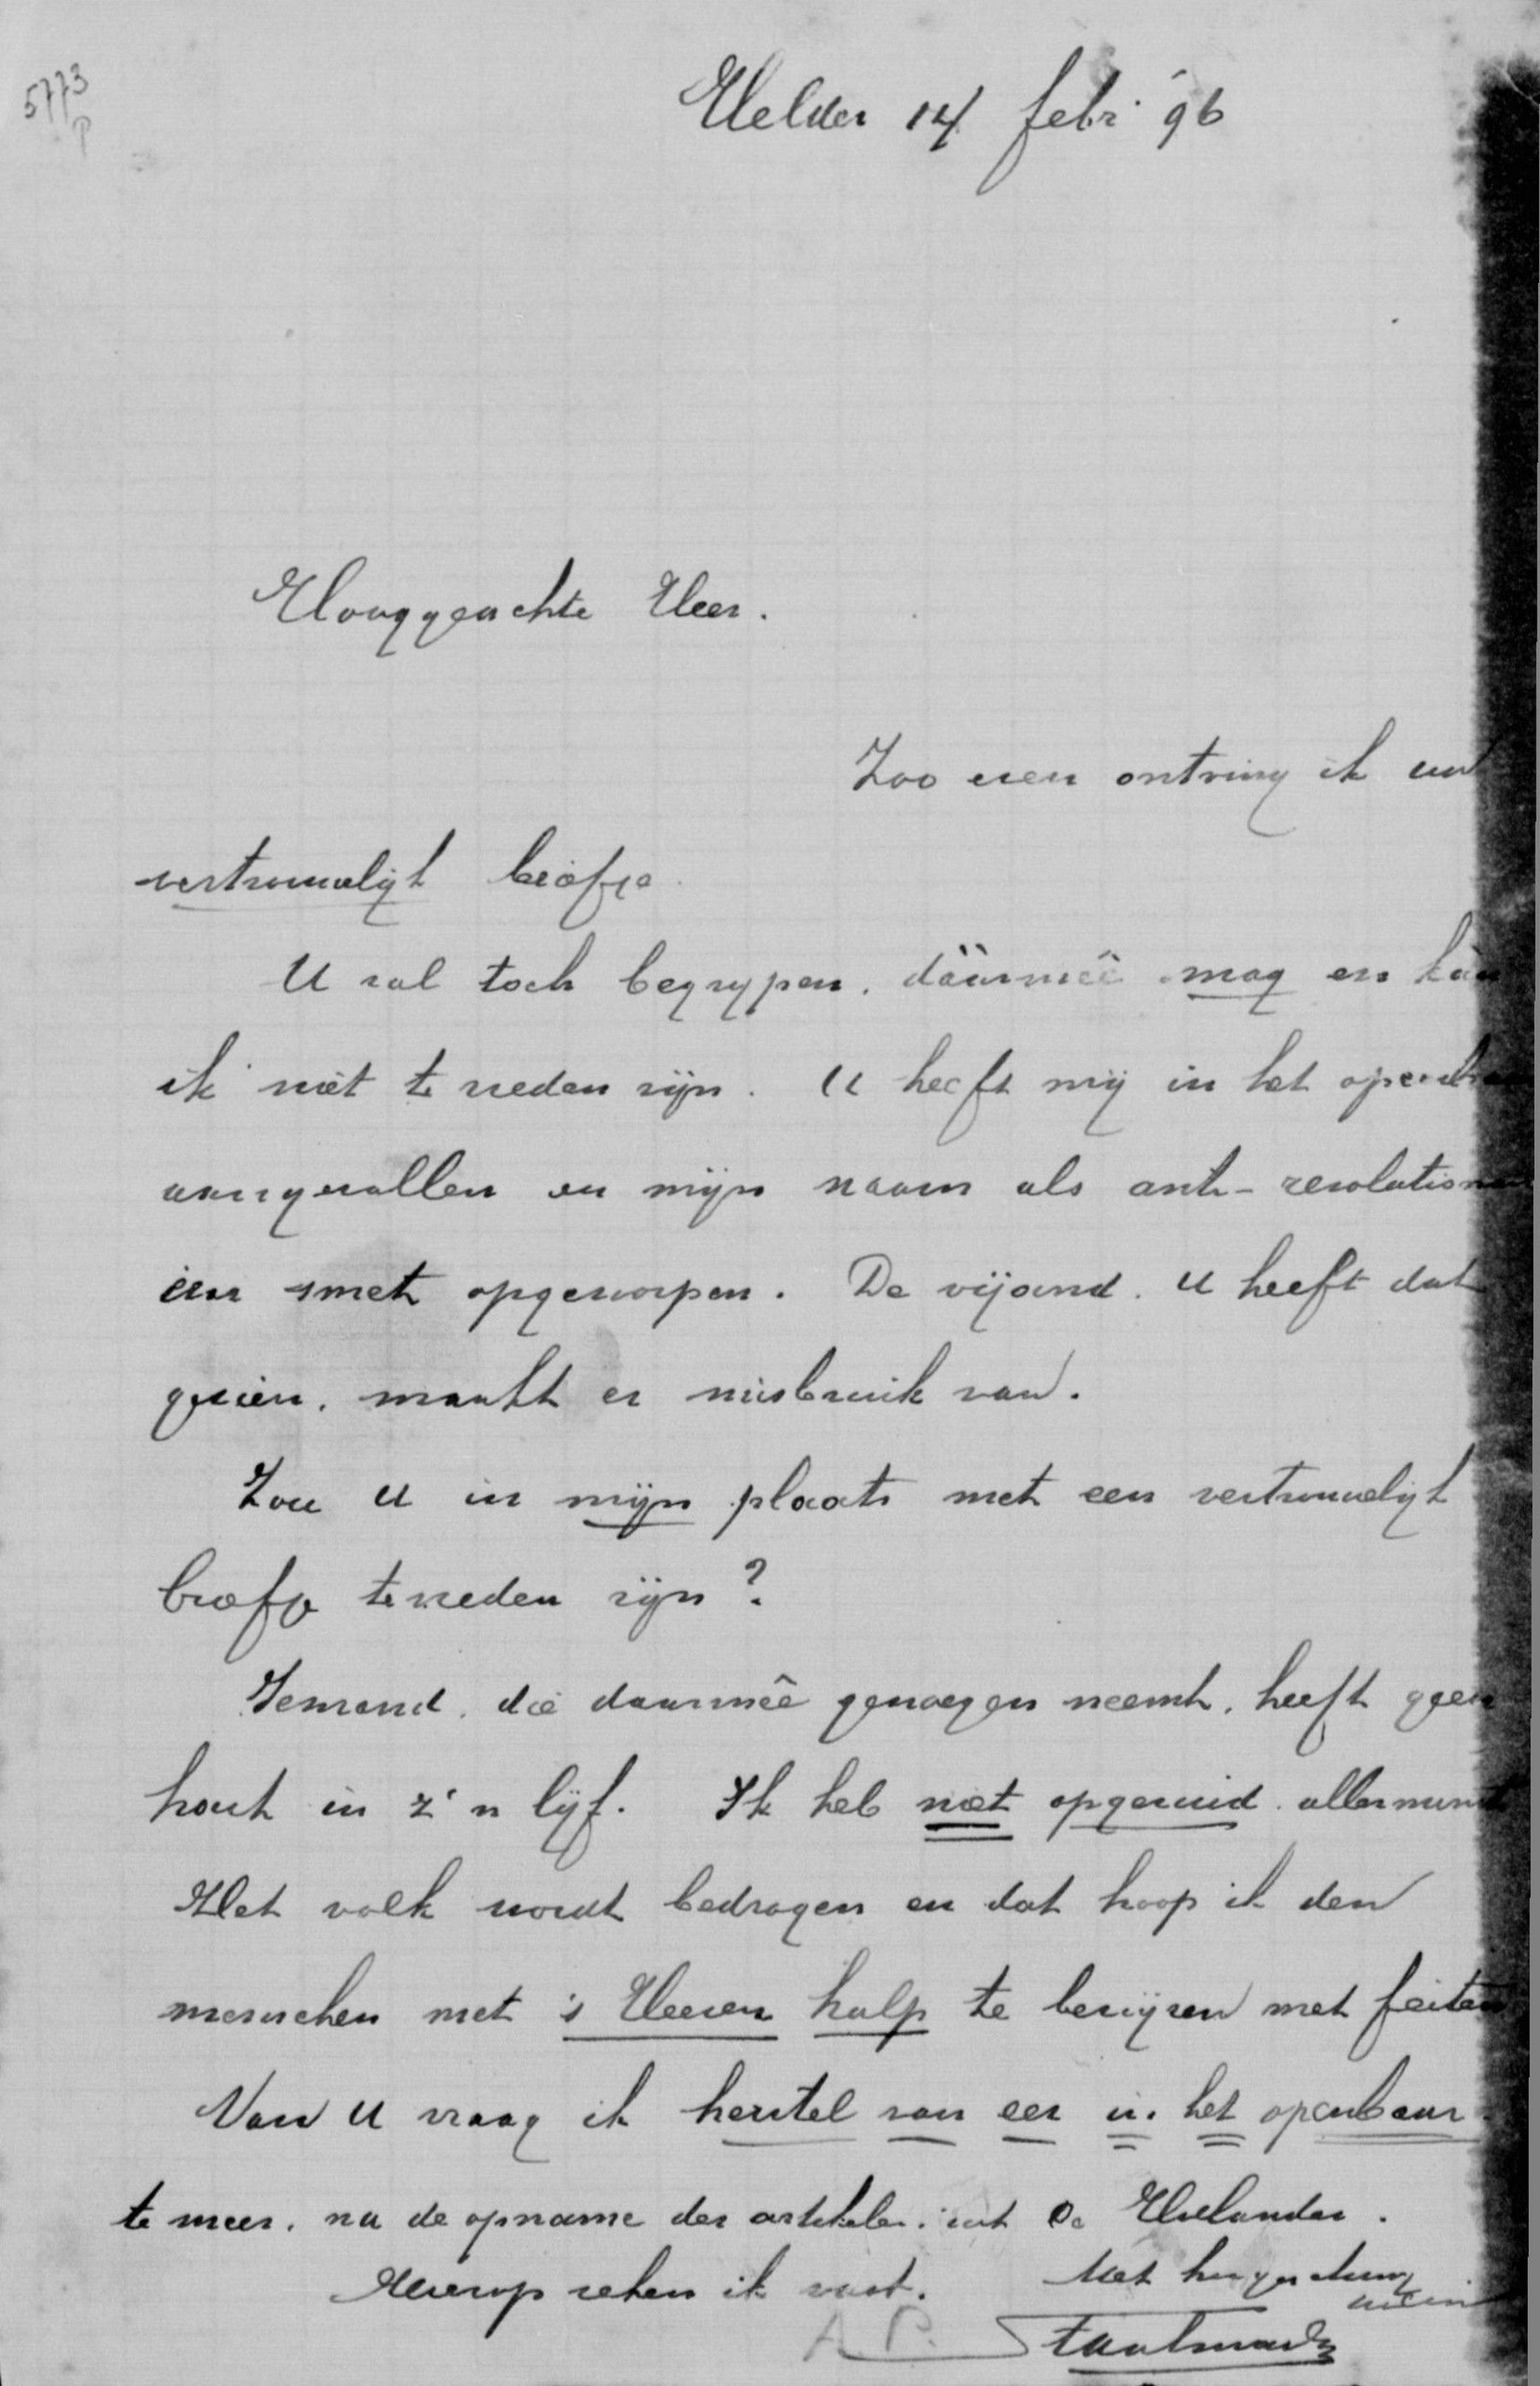 5773
P
Helder 14 febr. '96
Hooggeachte Heer.
Zoo even ontving ik uw
vertrouwelijk briefje
U zal toch begrypen, dáármeê mag en kan
ik niet te vreden zijn. U heeft mij in het openb
aangevallen en mijn naam als anti-revolution
een smet opgeworpen. De vijand, U heeft dat
gezien, maakt er misbruik van.
Zou U in mijn plaats met een vertrouwelijk
briefje tevreden zijn?
Iemand, die daarmeê genoegen neemt, heeft geen
hout in z'n lijf. Ik heb niet opgeruid, allerminst
Het volk wordt bedrogen en dat hoop ik den
menschen met 's Heeren hulp te bewijzen met feiten
Van U vraag ik herstel van eer in het openbaar
te meer, na de opname der artikelen uit De
Hierop reken ik vast. Met hoogachting
A P. Staalman